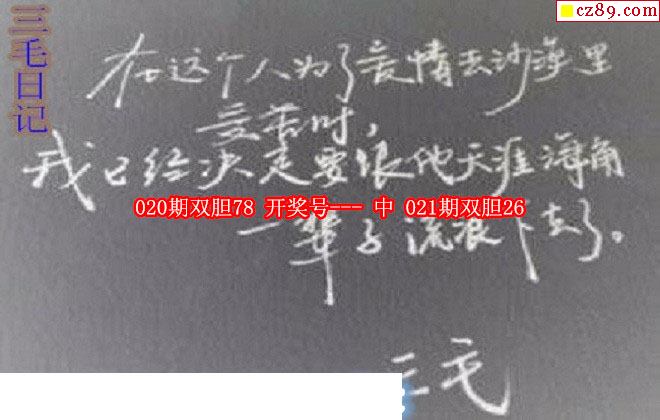 三毛日记
cz89.com
在这个人为了爱情去沙漠里
受苦时,
我已经决定要跟他天涯海角
020期双胆78 开奖号--- 中 021期双胆26
一辈子流浪下去了。
三毛